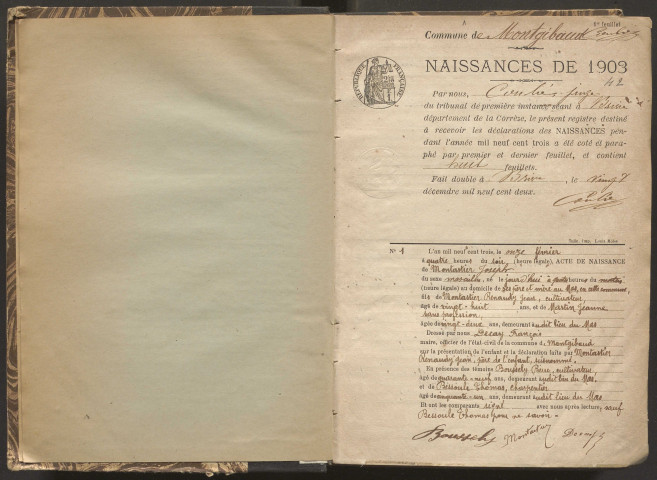 1er feuillet
Commune de Montgibaud
NAISSANCES DE 1903
RÉPUBLIQUE FRANÇAISE
Par nous, juge
du tribunal de première instance séant à Brive
département de la Corrèze, le présent registre destiné
à recevoir les déclarations des NAISSANCES pen-
dant l'année mil neuf cent trois a été coté et para-
phé par premier et dernier feuillet, et contient
huit feuillets.
Fait double à Brive, le vingt
décembre mil neuf cent deux.
Tulle, Imp. Louis
N° 1 L'an mil neuf cent trois, le onze février
à quatre heures du soir, (heure légale), ACTE DE NAISSANCE
de Montastier Joseph
du sexe masculin, né le jour d'hui à heures du matin
(heure légale) au domicile de ses père et mère au Mas, en cette commune,
fils de Montastier Renaudy Jean, cultivateur,
âgé de vingt-huit ans, et de Martin Jeanne
sans profession,
âgée de vingt-deux ans, demeurant audit lieu du Mas
Dressé par nous Decay François
maire, officier de l'état-civil de la commune de Montgibaud
sur la présentation de l'enfant et la déclaration faite par Montastier
Renaudy Jean, père de l'enfant, susnommé.
En présence des témoins Boussely Pierre, cultivateur
âgé de quarante-neuf ans, demeurant audit lieu du Mas,
et de Bessoule Thomas, charpentier
âgé de cinquante-un ans, demeurant audit lieu du Mas
Et ont les comparants signé avec nous après lecture, sauf
Bessoule Thomas pour ne savoir.
Boussely Montastier